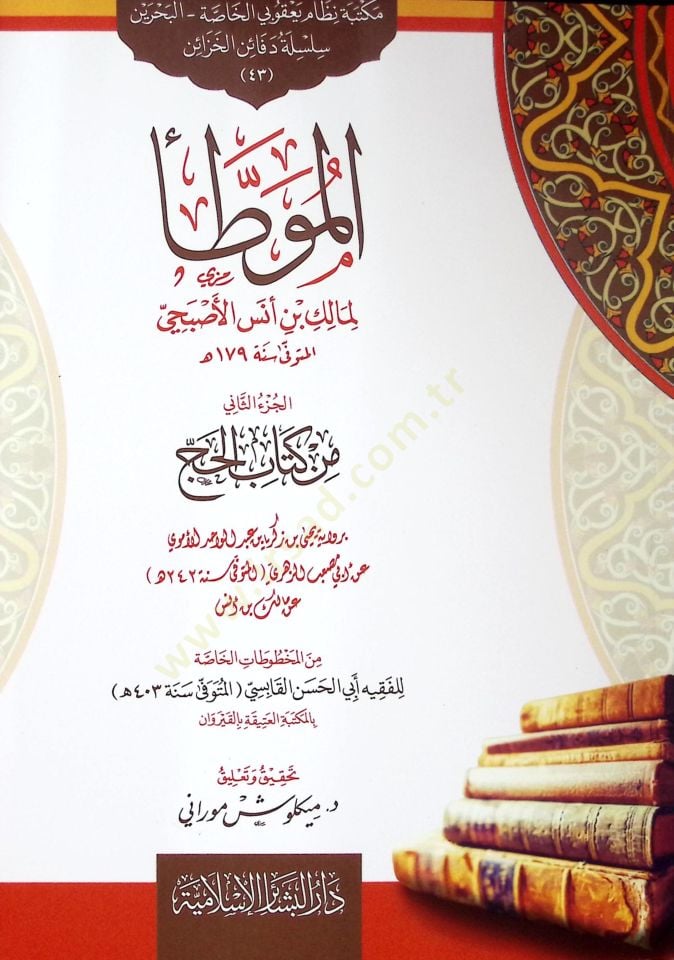 مكتبة نظام يعقوبي الخاصة - البحرين
سلسلة دفائن الخزائن
(٤٣)
الموطَّأ
لمالك بن أنس الأصبحيّ
المتوفى سنة ١٧٩ هـ
الجزء الثاني
من كتاب الحجّ
برواية يحيى بن زكريا بن عبد الواحد الأموي
عن أبي مصعب الزهري (المتوفى سنة ٢٤٢ هـ)
عن مالك بن أنس
من المخطوطات الخاصة
للفقيه أبي الحسن القابسيّ (المتوفى سنة ٤٠٣ هـ)
بالمكتبة العتيقة بالقيروان
تحقيق وتعليق
د. ميكلوش موراني
دار البشائر الإسلامية